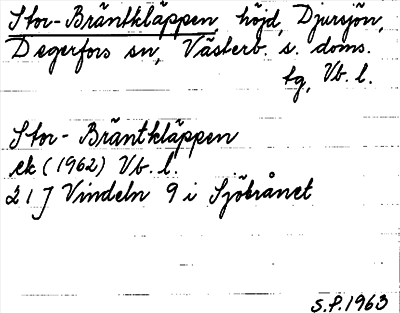 Stor-Bräntkläppen, höjd, Djursjön,
Degerfors sn, Västerb. s. doms.
tg, Vb. l.
Stor-Bräntkläppen
ek (1962) Vb. l.
21 J Vindeln 9 i Sjöbrånet
S.P. 1963